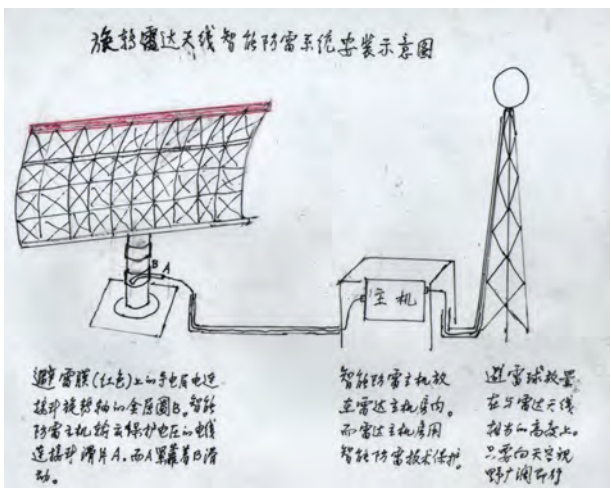 旋转雷达天线智能防雷系统安装示意图
B
A
主机
避雷膜(红色)上的导电层电连
接到旋转轴的金属圈B。智能
防雷主机输出保护电压的电线
连接到滑片A。而A紧靠着B滑
动。
智能防雷主机放
在雷达主机房内。
而雷达主机房用
智能防雷技术保护。
避雷球放置
在与雷达天线
相当的高度上。
只要向天空视
野广阔即行